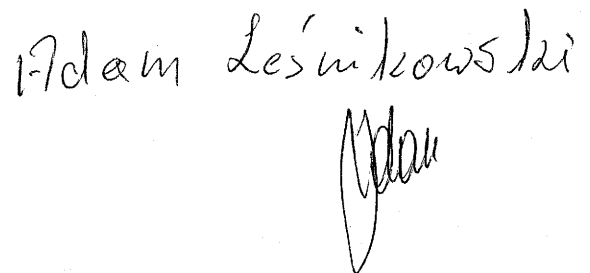 Adam Leśnikowski
Adam